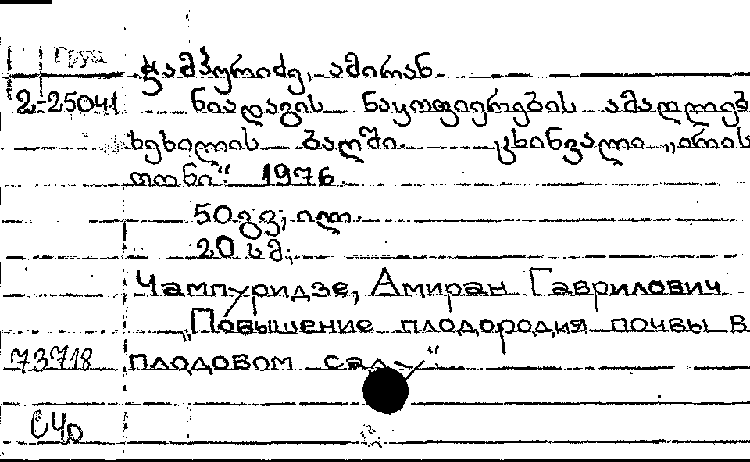 Груз
ჭამპურიძე, ამირან.
2-25041 ნიადაგის ნაყოფიერების ამაღლებ
ხეხილის ბაღში. ცხინვალი „ირის
თონი“ 1976.
50 გვ; ილ.
20 სმ.
Чампуридзе, Амиран Гаврилович
„Повышение плодородия почвы в
73718 плодовом саду“